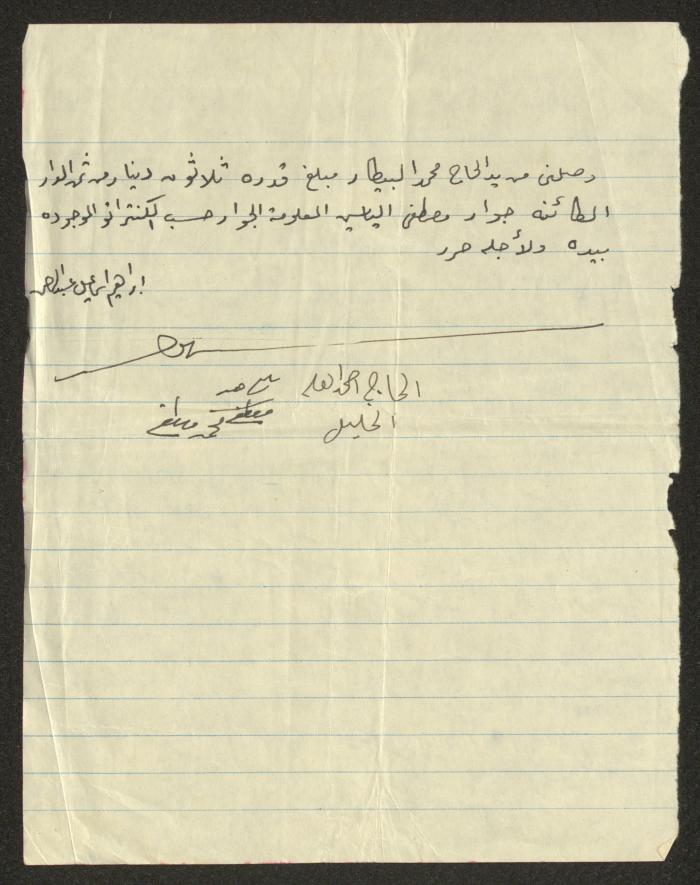 وصلني من يد الحاج محمد البيطار مبلغ قدره ثلاثون دينار من ثمن الدار
الكائنه جوار مصطفى المعلومة الجوار حسب الكنتراتو الموجوده
بيده ولأجله حرر
ابراهيم اسماعيل عبد الرحمن
الحاج احمد شاهد
الخليل مصطفى محمد مصطفى